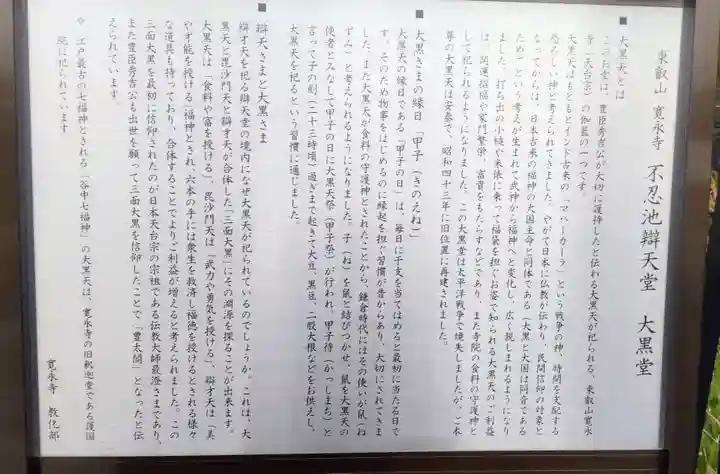 東叡山 寛永寺 不忍池辯天堂 大黒堂
■大黒天とは
このお堂は、豊臣秀吉公が大切に護持したと伝わる大黒天が祀られる、東叡山寛永
寺（天台宗）の伽藍の一つです。
大黒天はもともとインド古来の「マハーカーラ」という戦争の神、時間を支配する
恐ろしい神と考えられてきました。やがて日本に仏教が伝わり、民間信仰の対象と
なってからは、日本古来の福神の大国主命と同体である（大黒と大国は同音である
ため）という考えが生まれて武神から福神へと変化し、広く親しまれるようになり
ました。打ち出の小槌や米俵に乗って福袋を担ぐお姿で知られる大黒天のご利益
は、開運招福や家門繁栄、富貴をもたらすなどであり、また寺院の食料の守護神と
して祀られるようになりました。この大黒堂は太平洋戦争で焼失しましたが、ご本
尊の大黒天は安泰で、昭和四十三年に旧位置に再建されました。
■大黒さまの縁日「甲子（きのえね）」
大黒天の縁日である「甲子の日」は、毎日に干支を当てはめると最初に当たる日で
す。そのため物事をはじめるのに縁起を担ぐ習慣が昔からあり、大切にされてきま
した。また大黒天が食料の守護神とされたことから、鎌倉時代にはその使いが鼠（ね
ずみ）と考えられるようになりました。子（ね）を鼠と結びつかせ、鼠を大黒天の
使者とみなして甲子の日に大黒天祭（甲子祭）が行われ、甲子待（かっしまち）と
言って子の刻（二十三時頃）過ぎまで起きて大豆、黒豆、二股大根などをお供えし、
大黒天を祀るという習慣に通じました。
■辯天さまと大黒さま
辯才天を祀る辯天堂の境内になぜ大黒天が祀られているのでしょうか。これは、大
黒天と毘沙門天と辯才天が合体した「三面大黒」にその淵源を探ることが出来ます。
大黒天は「食料や富を授ける」、毘沙門天は「武力や勇気を授ける」、辯才天は「美
や才能を授ける」福神とされ、六本の手には衆生を救済し福徳を授けるとされる様々
な道具も持っており、合体することでよりご利益が増えると考えられました。この
三面大黒を最初に信仰されたのが日本天台宗の宗祖である伝教大師最澄さまであり、
また豊臣秀吉公も出世を願って三面大黒を信仰したことで「豊太閤」となったと伝
えられています。
※ 江戸最古の七福神とされる「谷中七福神」の大黒天は、寛永寺の旧釈迦堂である護国
院に祀られています。
寛永寺 教化部